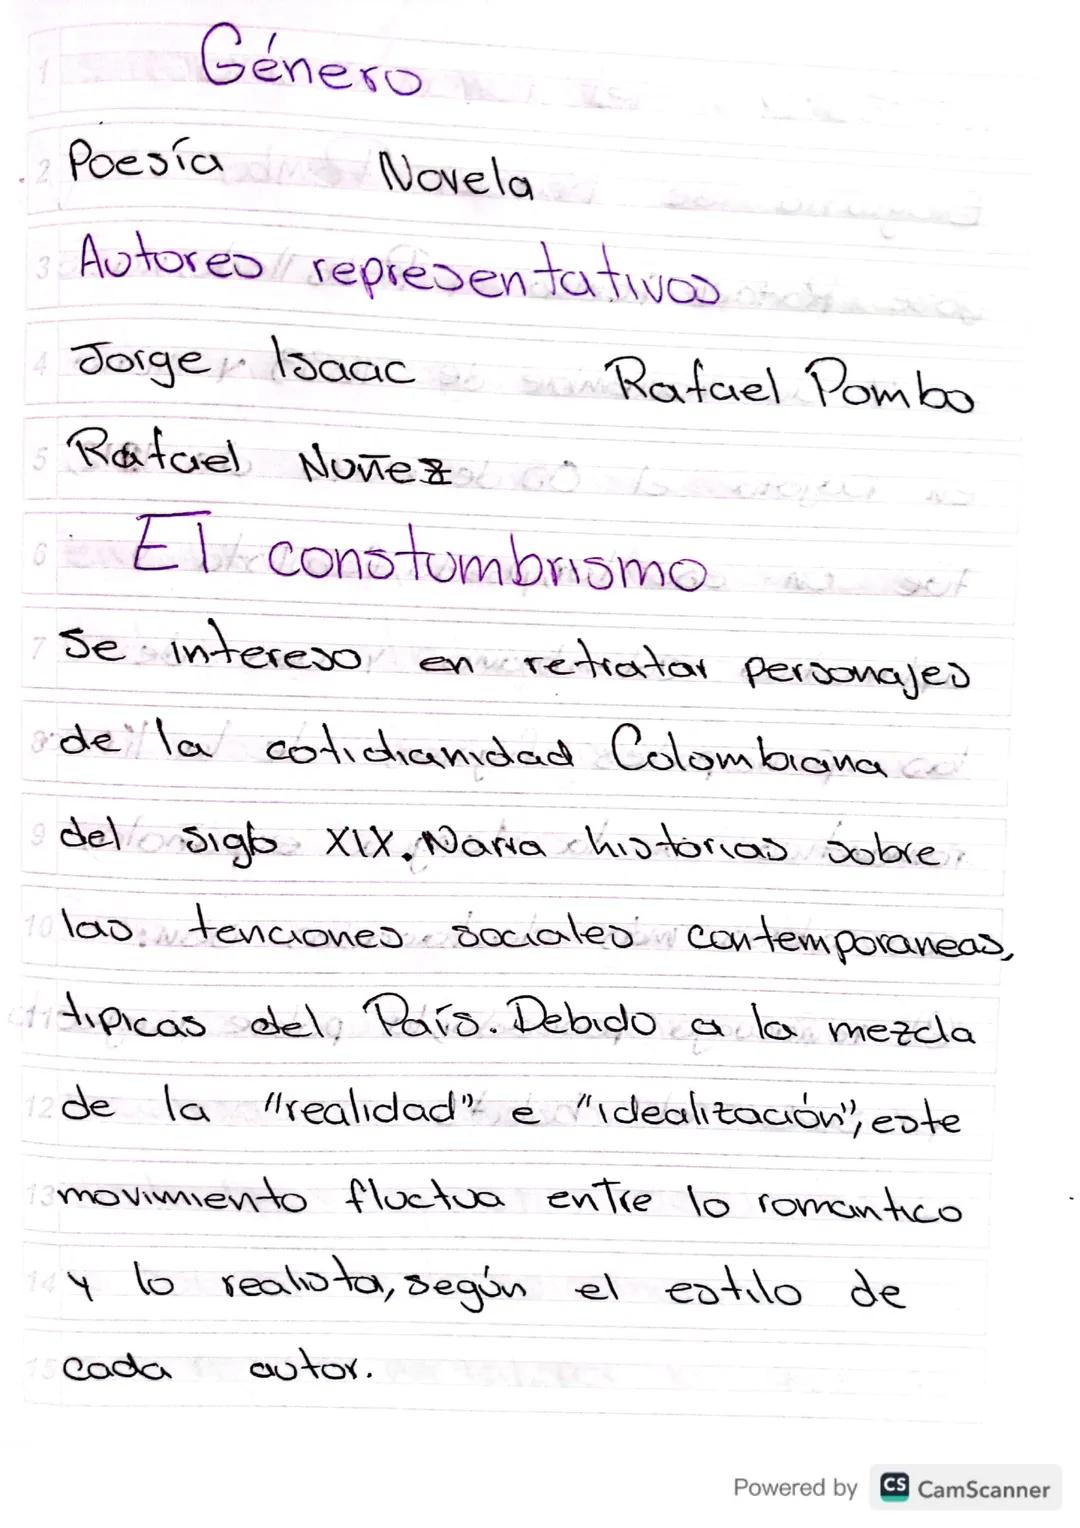 Género
Poesía Novela
Autores representativos
Jorge Isaac Rafael Pombo
Rafael Nuñez
El constumbrismo
Se intereso en retratar personajes
de la cotidianidad Colombiana
del siglo XIX. Narra historias sobre
las tenciones sociales contemporaneas,
tipicas del País. Debido a la mezcla
de la "realidad" e "idealización", este
movimiento fluctua entre lo romantico
y lo realista, según el estilo de
cada autor.
Powered by CS CamScanner